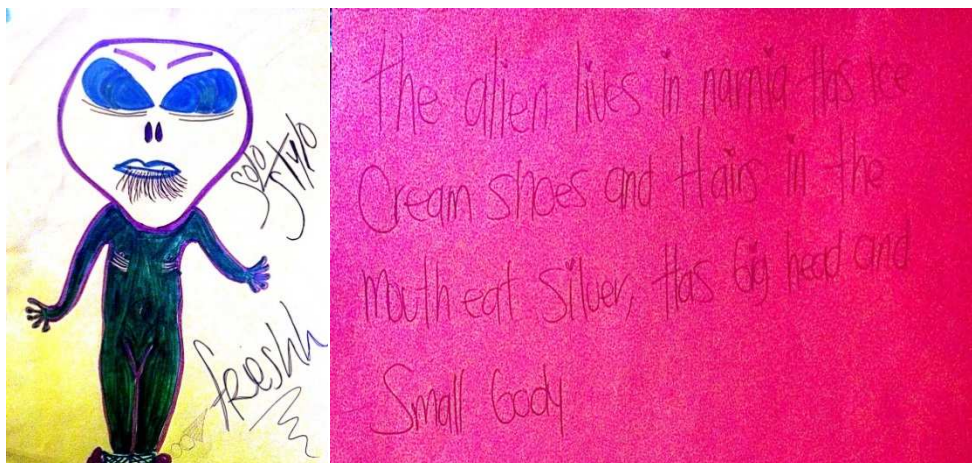 solo
stylo
freshh
The alien lives in narnia Has ice
Cream shoes and Hairs in the
mouth eat silver, Has big head and
Small body